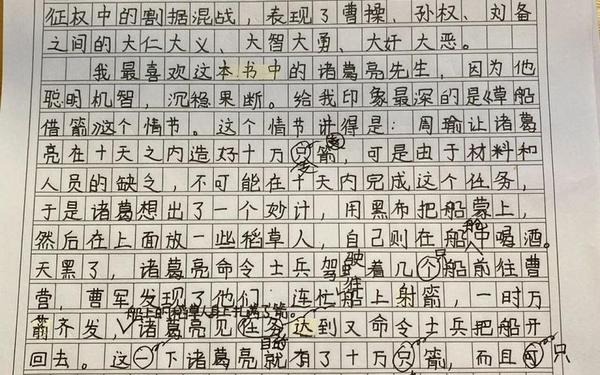 征权中的割据混战，表现了曹操、孙权、刘备
之间的大仁大义、大智大勇、大奸大恶。
我最喜欢这本书中的诸葛亮先生，因为他
聪明机智，沉稳果断。给我印象最深的是《草船
借箭》这个情节。这个情节讲得是：周瑜让诸葛
亮在十天之内造好十万只箭，可是由于材料和
支
人员的缺乏，不可能在十天内完成这个任务，
于是诸葛想出了一个妙计，用黑布把船蒙上，
船
然后在上面放一些稻草人，自己则在船中喝酒。
驶 只
天黑了，诸葛亮命令士兵驾着几个船前往曹
往
营，曹军发现了他们，连忙船上射箭，一时万
船上的稻草人身上扎满了箭。
箭齐发，诸葛亮见任务达到又命令士兵把船开
目的
回去。这一下诸葛亮就有了十万只箭，而且可只